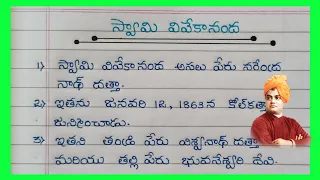 స్వామి వివేకానంద
1) స్వామి వివేకానంద అసలు పేరు నరేంద్ర
నాథ్ దత్తా.
2) ఇతను జనవరి 12, 1863న కోల్‌కతా
జన్మించాడు.
3) ఇతని తండ్రి పేరు విశ్వనాథ్ దత్తా
మరియు తల్లి పేరు భువనేశ్వరి దేవి.